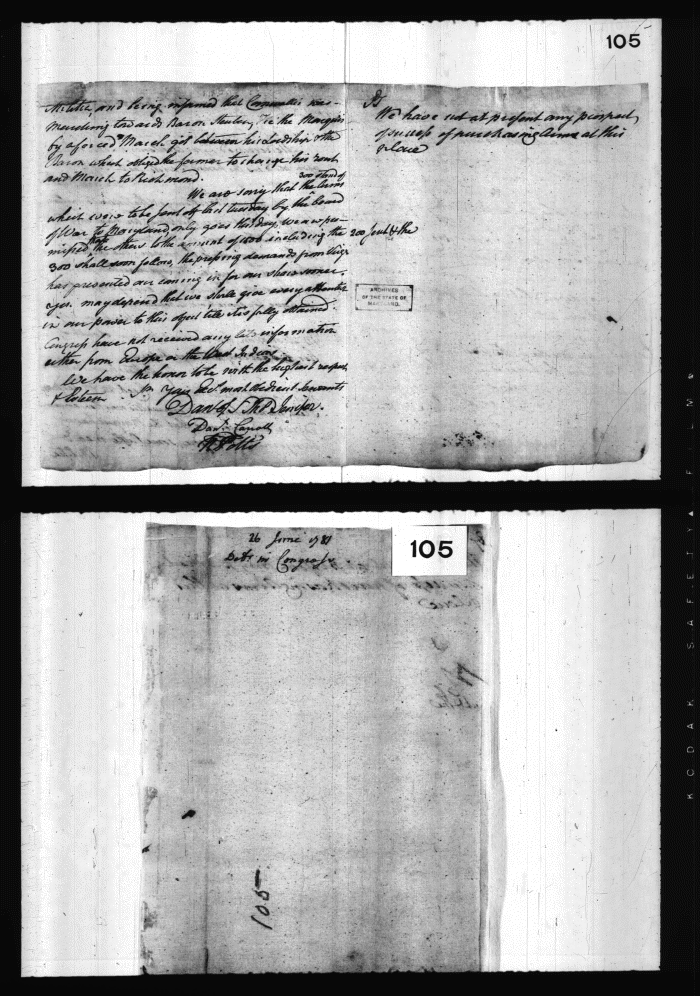 105
Militia, and being informed that Cornwallis was
marching towards Baron Steuben, the Marquiss
by a forced March got between his Lordship & the
Baron which obliged the former to change his rout
and March to Richmond.
300 stand of
We are sorry that the Arms
which were to be sent off last tuesday by the board
of War to Maryland, only goes this day, we are pro
mised that the others to the amount of including the 300 sent & the
300 shall soon follow, the pressing demands from Virga
has prevented our coming in for our share sooner,
You may depend that we shall give every attention
in our power to this object till it is fully obtained
Congress have not received any late information
either from Europe or the West Indies
We have the honor to be with the highest respect
& Esteem Yr Excys most Obedient Servants
Danl of St Thos Jenifer.
Danl Carroll
R Potts
Ps
We have not at present any prospect
of success of purchasing Arms at this
place
ARCHIVES
OF THE STATE OF
MARYLAND.
26 June 1781
Dets in Congress
105
105
KODAK SAFETY FILM